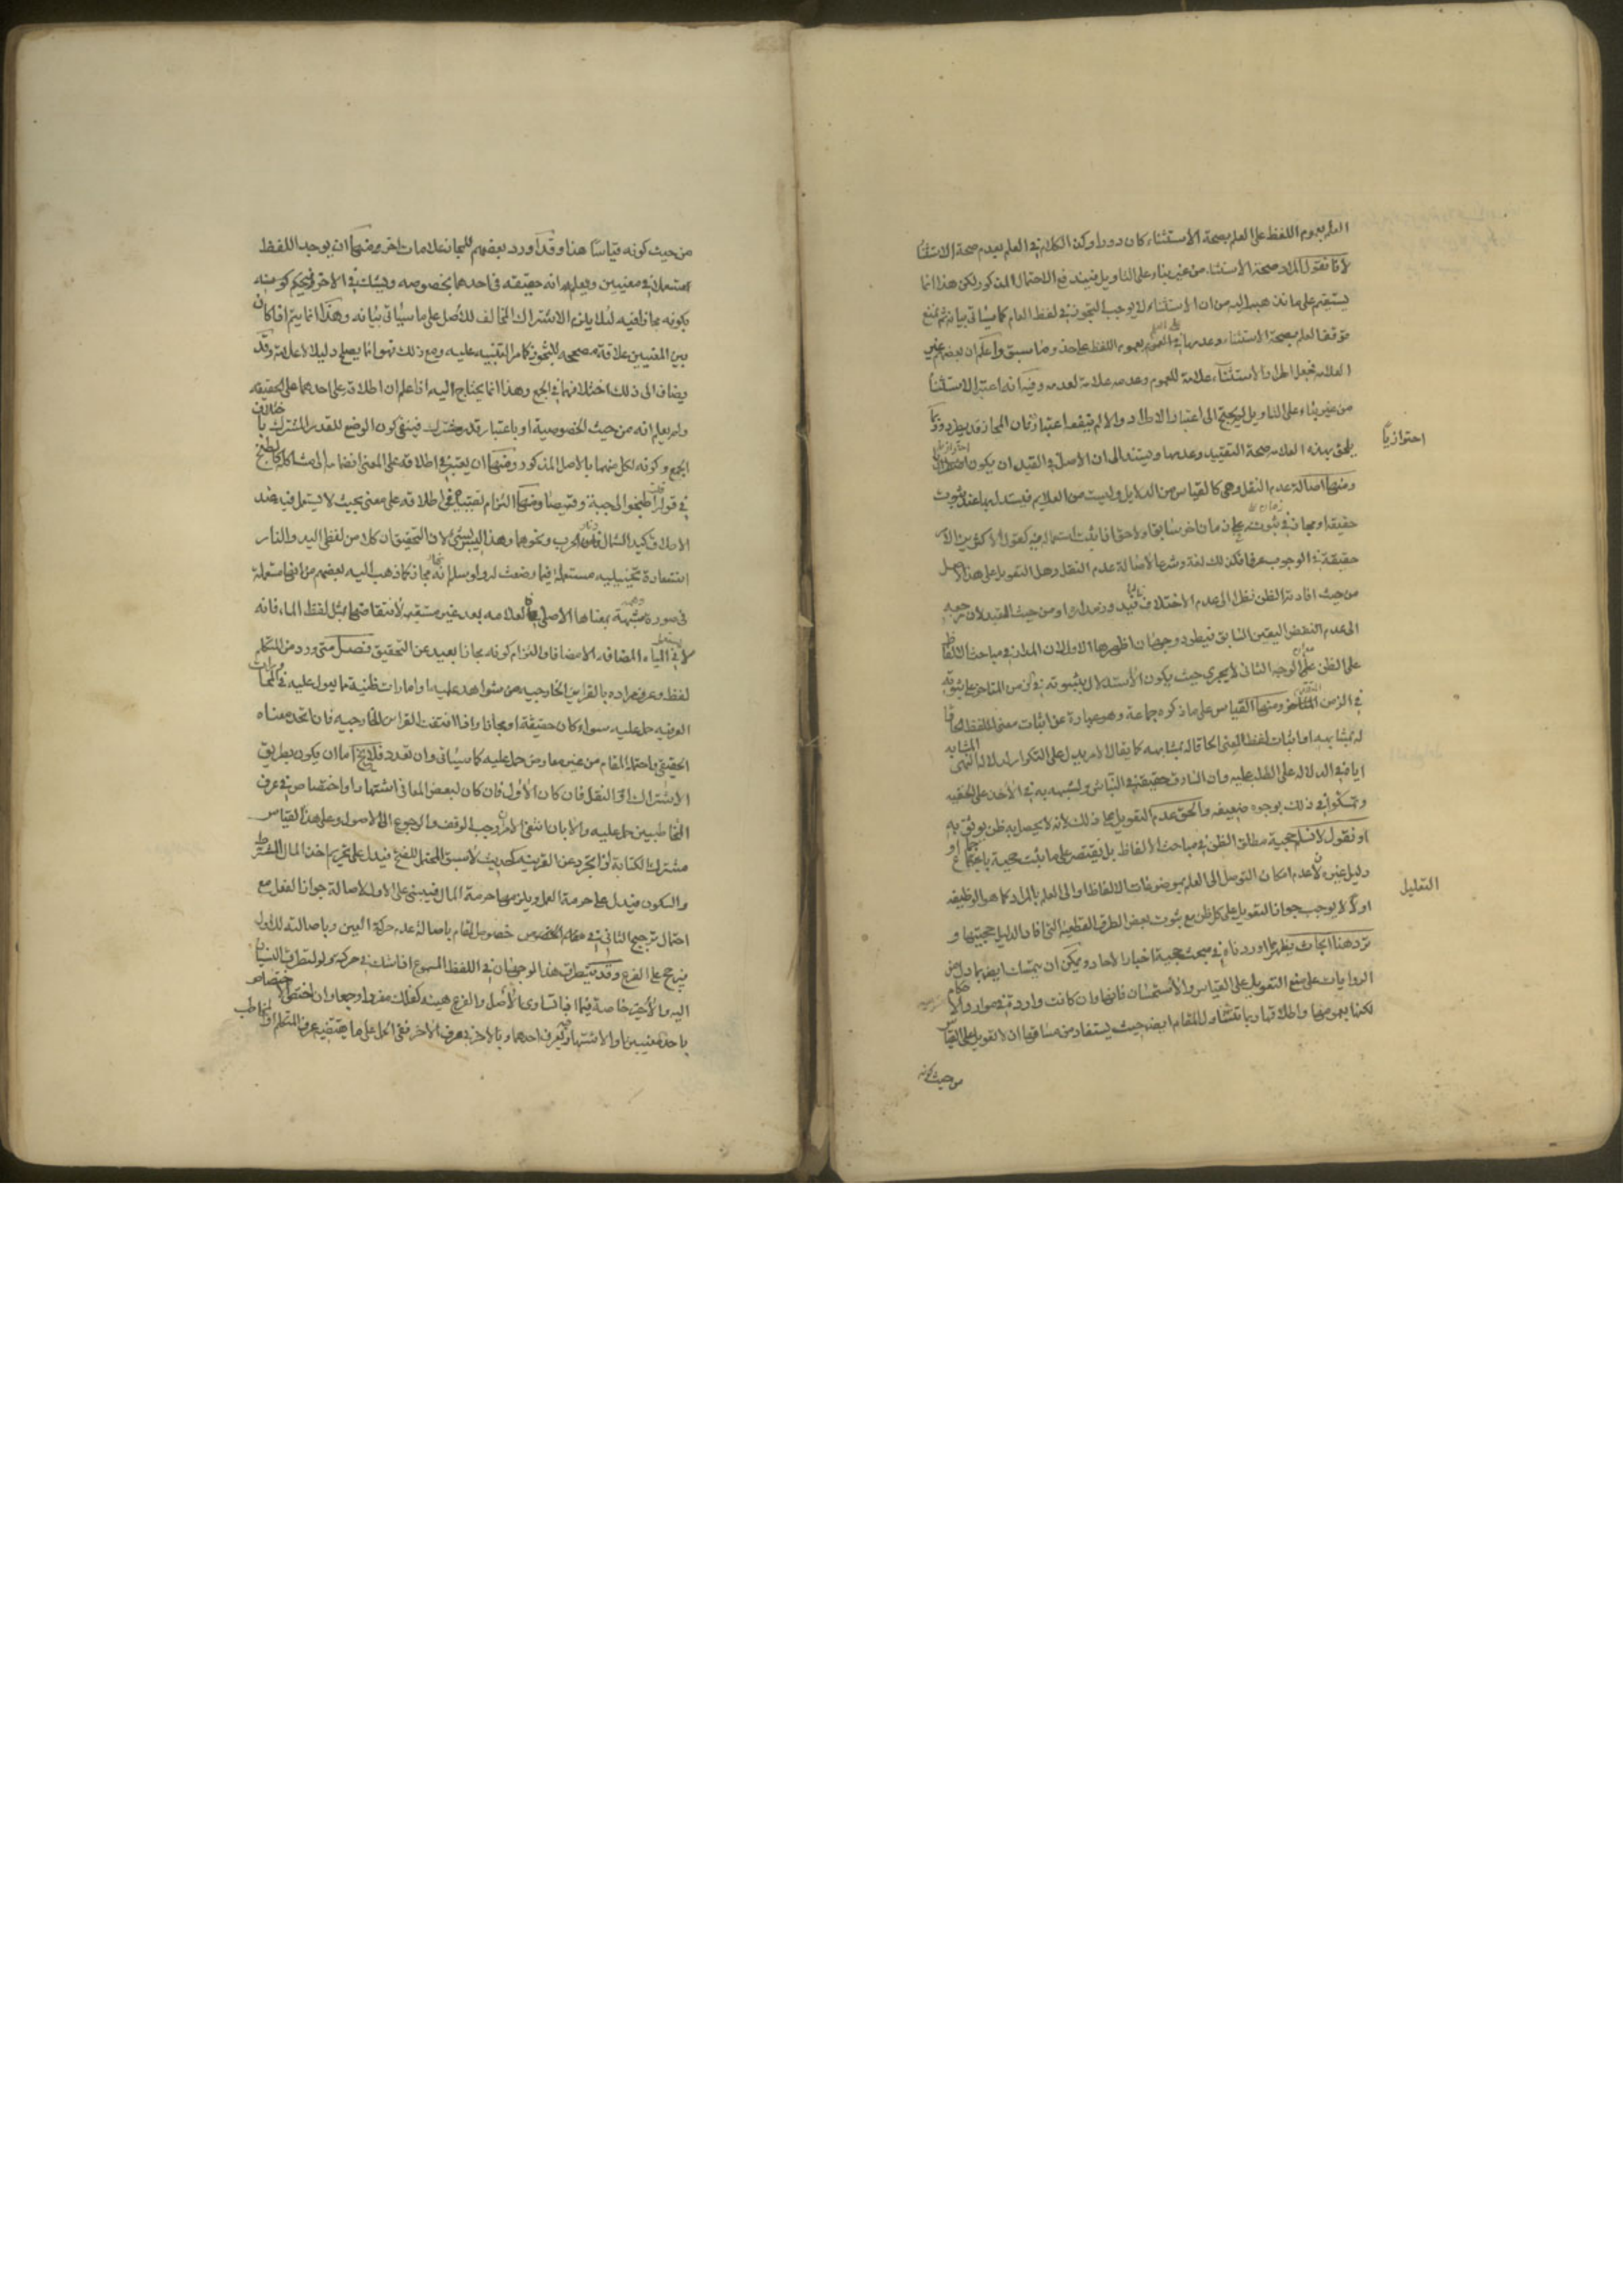 العلم بعموم اللفظ على العلم بصحة الاستثناء كان دورا وكذا الكلام في العلم بعدم صحة الاستثناء
لانا نقول المراد صحة الاستثناء من غير بناء على التاويل فيندفع الاحتمال المذكور لكن هذا انما
يستقيم على ما نذهب اليه من ان الاستثناء لا يوجب التجوز في لفظ العام كما سياتي بيانه ثم نمنع
توقف العلم بصحة الاستثناء وعدمها في العموم على العلم بعموم اللفظ على حذو ما سبق واعلم ان بعضهم غير
العلامة فجعل اطراد الاستثناء علامة للعموم وعدمه علامة لعدمه وفيه انه اعتبر الاستثناء
من غير بناء على التاويل لم يحتج الى اعتبار الاطراد والا لم ينفعه اعتباره فان المجاز قد يطرد وربما
يلحق بهذه العلامة صحة التقييد وعدمها ويستند الى ان الاصل في القيد ان يكون احترازيا
احترازيا
ومنها اصالة عدم النقل وهي كالقياس من الدلايل وليست من العلايم فيستدل بها عند ثبوت
حقيقة او مجاز في زمان على ثبوته في زمان اخر سابقا ولاحقا فاذا ثبت استعماله فيه كقول الاكثرين الامر
حقيقة في الوجوب عرفا فكذلك لغة وشرعا لاصالة عدم النقل وهل التعويل على هذا الاصل
من حيث افادته الظن نظرا الى عدم الاختلاف غالبا فيدور مداره او من حيث التعبد لان مرجعه
الى عدم النقض اليقين السابق فيطرد وجهان اظهرهما الاول لان المدار في مباحث الالفاظ
على الظن على ان الوجه الثاني لا يجري حيث يكون الاستدلال بثبوته في زمن المتاخر على ثبوته
في الزمن المتقدم ومنها القياس على ما ذكره جماعة وهو عبارة عن اثبات معنى اللفظ الحاقا
له بمشابهه او اثبات لفظ لمعنى الحاقا له بمشابهه كما يقال الامر يدل على التكرار لدلالة النهي المشابه
اياه في الدلالة على الطلب عليه وان السارق حقيقة في النباش لشبهه به في الاخذ على الخفية
وتمسكوا في ذلك بوجوه ضعيفة والحق عدم التعويل على ذلك لانه لا يحصل به ظن يوثق به
او نقول لا نسلم حجية مطلق الظن في مباحث الالفاظ بل نقتصر على ما ثبت حجيته باجماع او
دليل غيره لان عدم امكان التوصل الى العلم بموضوعات الالفاظ والى العلم بالمراد كما هو الوظيفة
التعليل
اولا لا يوجب جواز التعويل على كل ظن مع ثبوت بعض الطرق القطعية التي افاد الدليل حجيتها و
ترد هنا ابحاث يظهر مما اوردناه في مبحث حجية اخبار الاحاد ويمكن ان يتمسك ايضا بما دل من
الروايات على منع التعويل على القياس والاستحسان فانها وان كانت واردة في موارد الاحكام
لكنها بعمومها واطلاقها ربما تتناول المقام ايضا حيث يستفاد من مساقها ان لا تعويل على القياس
من حيث كونه
من حيث كونه قياسا هذا وقد اورد بعضهم للمجاز علامات اخر ومنها ان يوجد اللفظ
مستعملا في معنيين ويعلم انه حقيقة في احدهما بخصوصه ويشك في الاخر فيحكم
بكونه مجازا فيه لئلا يلزم الاشتراك المخالف للاصل على ما سياتي بيانه وهذا انما يتم اذا كان
بين المعنيين علاقة مصححة للتجوز كما مر التنبيه عليه ومع ذلك فهو انما يصلح دليلا لا علامة وقد
يضاف الى ذلك اختلافهما في الجمع وهذا انما يحتاج اليه اذا علم ان اطلاقه على احدهما على الحقيقة
ولم يعلم انه من حيث الخصوصية او باعتبار قدر مشترك فينفى كون الوضع للقدر المشترك باختلاف
الجمع وكونه لكل منهما بالاصل المذكور ومنها ان يعتبر في اطلاقه على المعنى انضمامه الى مشاكله كالطبخ
في قوله قلت اطبخوا لي جبة وقميصا ومنها التزام تقييده في اطلاقه على معنى بحيث لا يستعمل فيه عند
الاطلاق كيد الشمال ونار الحرب ونحوهما وهذا ليس بشيء لان التحقيق ان كلا من لفظي اليد والنار
استعارة تخييلية مستعملة فيما وضعت له ولو سلم انه مجاز كما ذهب اليه بعضهم من انها مستعملة
في صورة وهمية مشبهة بمعناها الاصلي فالعلامة بعد غير مستقيمة لانتقاضها بمثل لفظ الماء فانه
لا يستعمل في المياه المضافة الا مضافا والتزام كونه مجازا بعيد عن التحقيق فصل متى ورد من المتكلم
لفظ وعرف مراده بالقراين الخارجية من شواهد علمية او امارات ظنية مما يعول عليه في المحاورات
العرفية حمل عليه سواء كان حقيقة او مجازا واذا انتفت القراين الخارجية فان اتحد معناه
الحقيقي باحتماله المقام من غير معارض حمل عليه كما سياتي وان تعدد فلا يخ اما ان يكون بطريق
الاشتراك او النقل فان كان الاول فان كان لبعض المعاني اشتهار او اختصاص في عرف
المتخاطبين حمل عليه والا بان انتفى الامران وجب الوقف والرجوع الى الاصول وعلى هذا القياس
مشترك الكتابة اذا تجرد عن القرينة كحديث لا سبق المحتمل للفتح فيدل على تحريم اخذ المال المشترط
والسكون فيدل على حرمة العمل ويلزمها حرمة المال فيبنى على الاول لاصالة جواز الفعل مع
احتمال ترجيح الثاني في خصوص المقام باصالة عدم حركة العين وباصالته للاول
يترجح على الفرع وقد يتطرق هذا الوجهان في اللفظ المسموع اذا شك في حركته ولو لتطرق النسيان
اليه والاخير خاصة فيما اذا تساوى الاصل والفرع هيئة كفلك مفردا وجمعا وان اختص الاختصاص
باحد معنيين او الاشتهار فيه بعرف احدهما وبالاخر بعرف الاخر ففي الحمل على ما يقتضيه عرف المتكلم او المخاطب